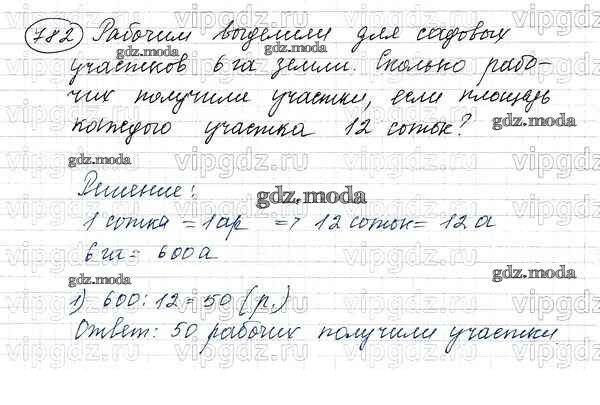 782 Рабочим выделили для садовых
участков 6 га земли. Сколько рабо-
чих получили участки, если площадь
каждого участка 12 соток?
Решение:
1 сотка = 1ар => 12 соток = 12 а
6 га = 600 а
1) 600 : 12 = 50 (р.)
Ответ: 50 рабочих получили участки
gdz.moda
vipgdz.ru